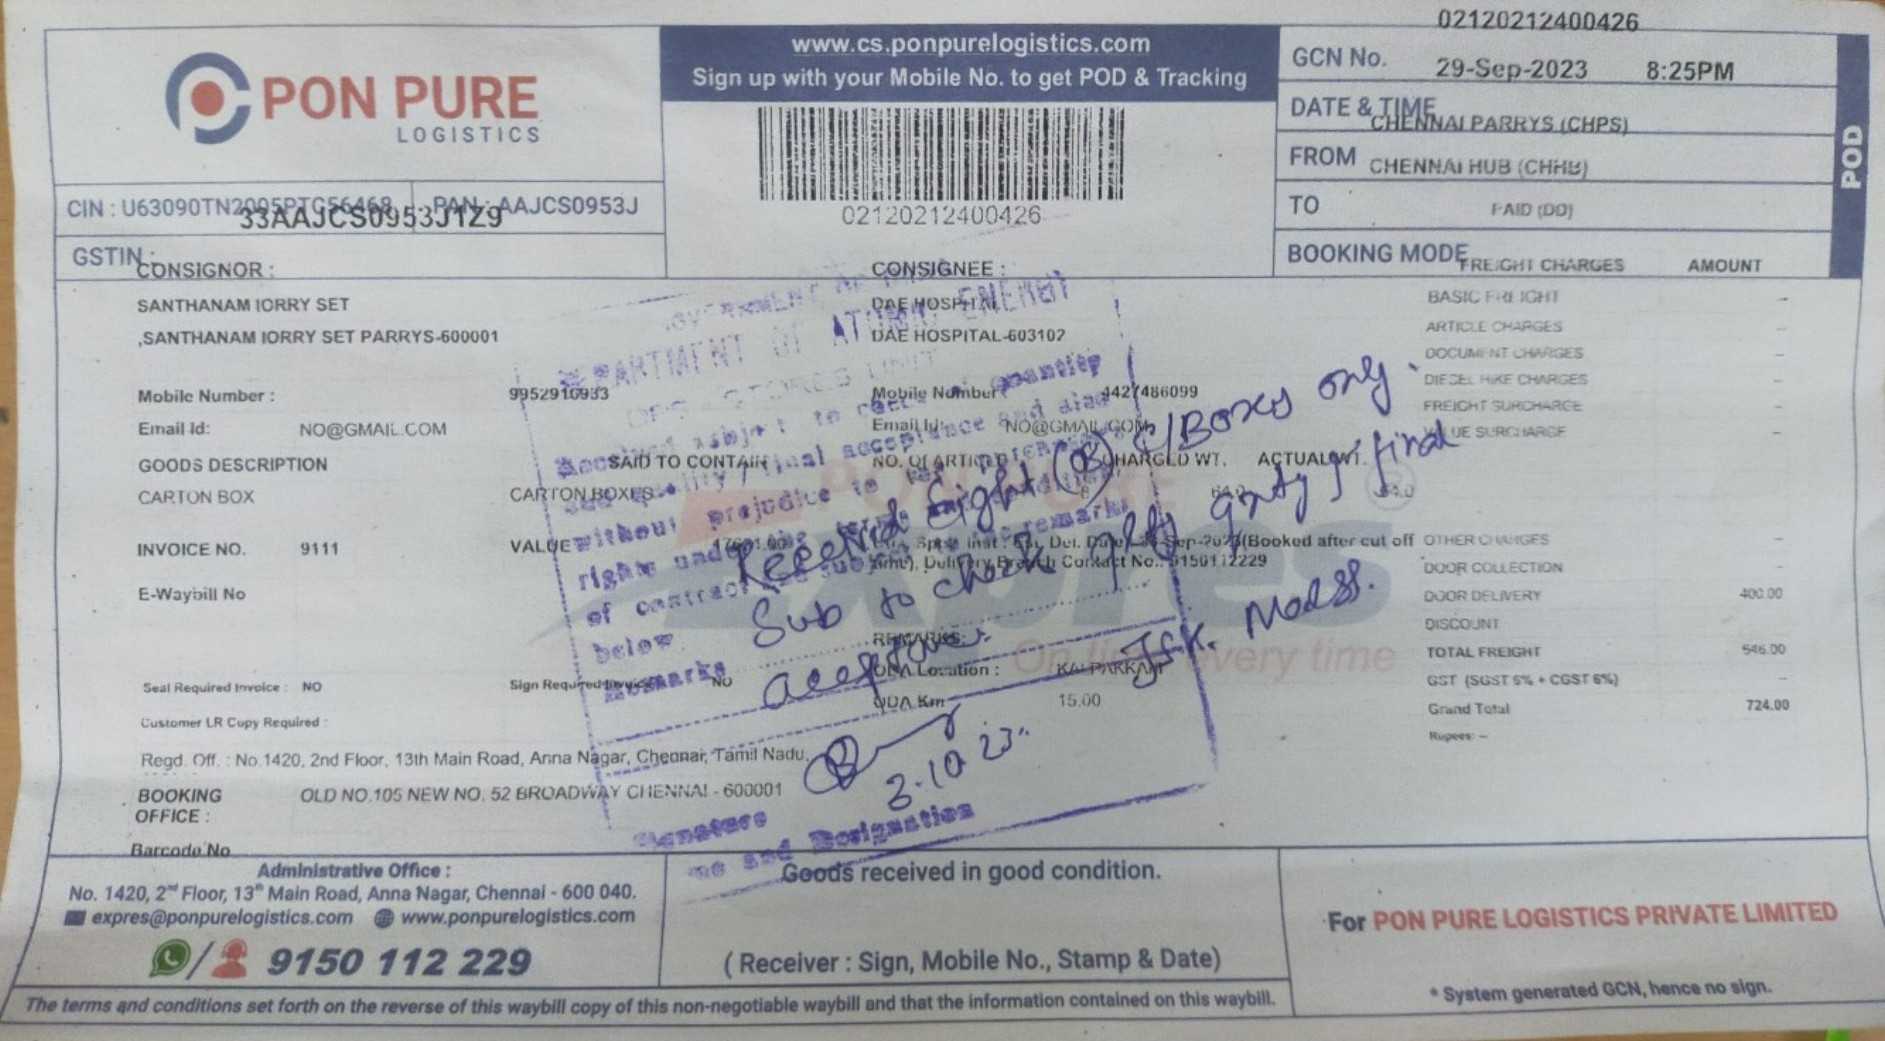 02120212400426
PON PURE
LOGISTICS
www.cs.ponpurelogistics.com
Sign up with your Mobile No. to get POD & Tracking
02120212400426
GCN No.
29-Sep-2023 8:25PM
DATE & TIME
CHENNAI PARRYS (CHPS)
FROM CHENNAI HUB (CHHB)
TO PAID (DD)
BOOKING MODE
POD
CIN : U63090TN2005PTC56468 PAN : AAJCS0953J
33AAJCS0953J1Z9
GSTIN :
CONSIGNOR :
SANTHANAM lORRY SET
,SANTHANAM lORRY SET PARRYS-600001
Mobile Number : 9952916933
Email Id: NO@GMAIL.COM
CONSIGNEE :
DAE HOSPITAL
DAE HOSPITAL-603102
Mobile Number 4427486099
Email Id: NO@GMAIL.COM
GOODS DESCRIPTION SAID TO CONTAIN NO. Of ARTICLE CHARGED WT. ACTUAL WT.
CARTON BOX CARTON BOXES 8 64.0 64.0
INVOICE NO. 9111 VALUE
Sep-2023(Booked after cut off
time), Delivery Branch Contact No.: 9150112229
E-Waybill No
REMARKS:
ODA Location : KALPAKKAM
ODA Km 15.00
Seal Required Invoice : NO Sign Required Invoice NO
Customer LR Copy Required :
Regd. Off. : No.1420, 2nd Floor, 13th Main Road, Anna Nagar, Chennai, Tamil Nadu,
BOOKING OLD NO.105 NEW NO. 52 BROADWAY CHENNAI - 600001
OFFICE :
Barcode No
FREIGHT CHARGES AMOUNT
BASIC FREIGHT -
ARTICLE CHARGES -
DOCUMENT CHARGES -
DIESEL HIKE CHARGES -
FREIGHT SURCHARGE -
VALUE SURCHARGE -
OTHER CHARGES -
DOOR COLLECTION -
DOOR DELIVERY 400.00
DISCOUNT
TOTAL FREIGHT 546.00
GST (SGST 6% + CGST 6%) -
Grand Total 724.00
Rupees: --
PON PURE
Expres
On time every time
GOVERNMENT OF
DEPARTMENT OF ATOMIC ENERGY
STORES UNIT
Received subject to quantity
quality / final acceptance and
without prejudice to
rights under the terms
of contract and subject remarks
below.
Remarks
Signature
and Designation
Received Eight (08) Boxes only.
Sub to check qty for final
acceptance
3.10.23
Administrative Office :
No. 1420, 2nd Floor, 13th Main Road, Anna Nagar, Chennai - 600 040.
expres@ponpurelogistics.com www.ponpurelogistics.com
/ 9150 112 229
Goods received in good condition.
( Receiver : Sign, Mobile No., Stamp & Date)
For PON PURE LOGISTICS PRIVATE LIMITED
* System generated GCN, hence no sign.
The terms and conditions set forth on the reverse of this waybill copy of this non-negotiable waybill and that the information contained on this waybill.